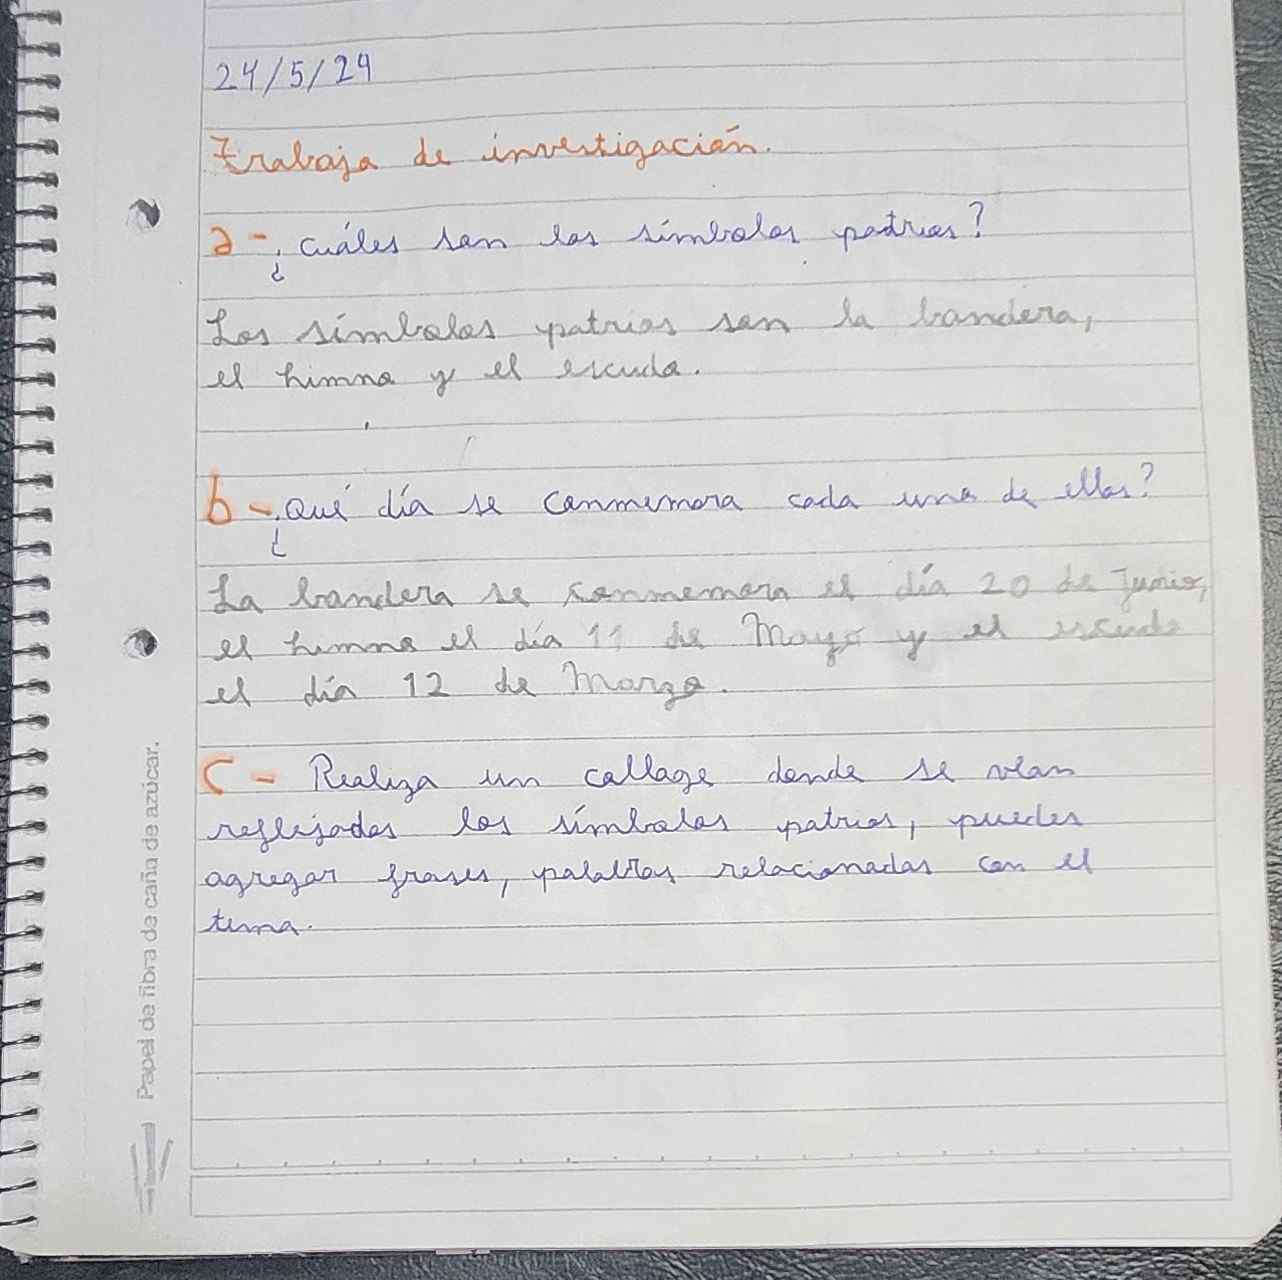 24/5/24
Trabajo de investigación.
a- ¿Cuáles son los símbolos patrios?
Los símbolos patrios son la bandera,
el himno y el escudo.
b- ¿Qué día se conmemora cada uno de ellos?
La bandera se conmemora el día 20 de Junio,
el himno el día 11 de Mayo y el escudo
el día 12 de Marzo.
c- Realiza un collage donde se vean
reflejados los símbolos patrios, puedes
agregar frases, palabras relacionadas con el
tema.
Papel de fibra de caña de azúcar.